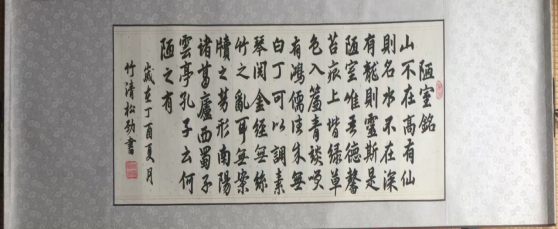 陋室銘
山不在高有仙
則名水不在深
有龍則靈斯是
陋室惟吾德馨
苔痕上階绿草
色入簾青談笑
有鴻儒往來無
白丁可以調素
琴閱金經無絲
竹之亂耳無案
牘之勞形南陽
諸葛廬西蜀子
雲亭孔子云何
陋之有
歲在丁酉夏月
竹清松勁書